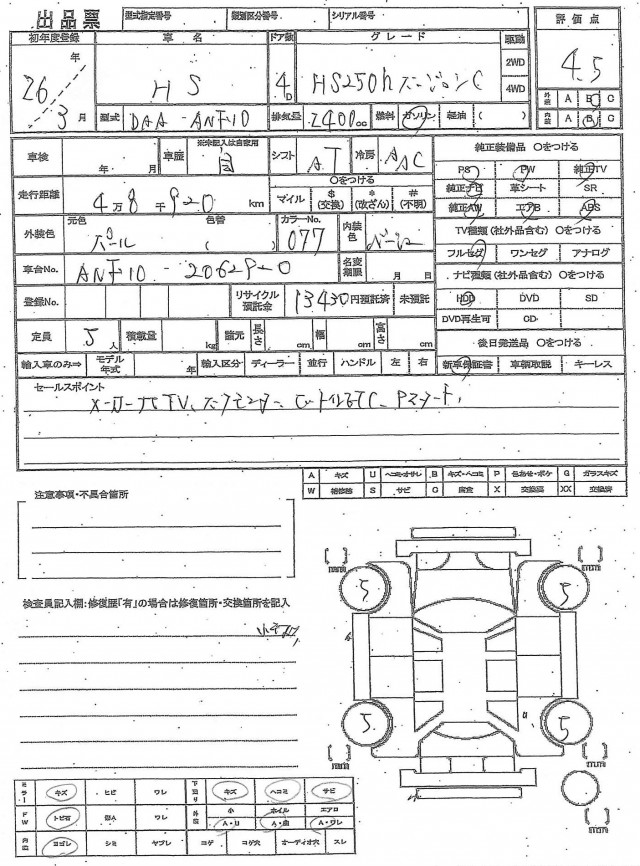 出品票 型式指定番号 類別区分番号 シリアル番号 評価点
初年度登録 車名 ドア数 グレード 駆動
26年 3月 HS 4D HS250h バージョンC 2WD 4WD 4.5
型式 DAA-ANF10 排気量 2400cc 燃料 ガソリン 軽油 ( )
外装 A B C
内装 A B C
車検 年 月 車歴 ※未記入は自家用 自 シフト AT 冷房 AAC
走行距離 4万8千920km マイル 〇をつける $(交換) *(改ざん) #(不明)
外装色 元色 パール 色替 ( ) カラーNo. 077 内装色 ベージュ
車台No. ANF10-2062920 名変期限 月 日
登録No. リサイクル預託金 13430円預託済 未預託
定員 5人 積載量 kg 諸元 長さ cm 幅 cm 高さ cm
輸入車のみ⇒ モデル年式 年 輸入区分 ディーラー 並行 ハンドル 左 右
純正装備品 〇をつける
PS PW 純正TV
純正ナビ 革シート SR
純正AW エアB ABS
TV種類(社外品含む) 〇をつける
フルセグ ワンセグ アナログ
ナビ種類(社外品含む) 〇をつける
HDD DVD SD
DVD再生可 CD
後日発送品 〇をつける
新車保証書 車輌取説 キーレス
セールスポイント
メーカーナビTV、バックモニター、ビルトインETC、Pスタート、
A キズ U ヘコミ・オサレ B キズ・ヘコミ P 色あせ・ボケ G ガラスキズ
W 補修跡 S サビ C 腐食 X 交換要 XX 交換済
注意事項・不具合箇所
検査員記入欄:修復歴「有」の場合は修復箇所・交換箇所を記入
mm mm
5 5
5 5
mm mm
ミラー キズ ヒビ ワレ 下回り キズ ヘコミ サビ
FW トビ石 ワレ 外装 小 A・U ホイル A・曲 エアロ A・ワレ
内装 ヨゴレ シミ ヤブレ コゲ コゲ穴 オーディオ穴 スレ